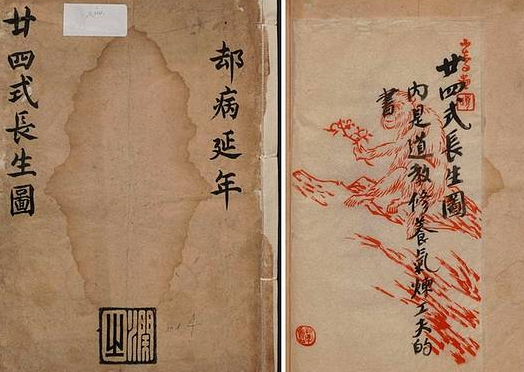 卻病延年
廿四式長生圖
廿四式長生圖
內是道教修養氣煉工夫的
書